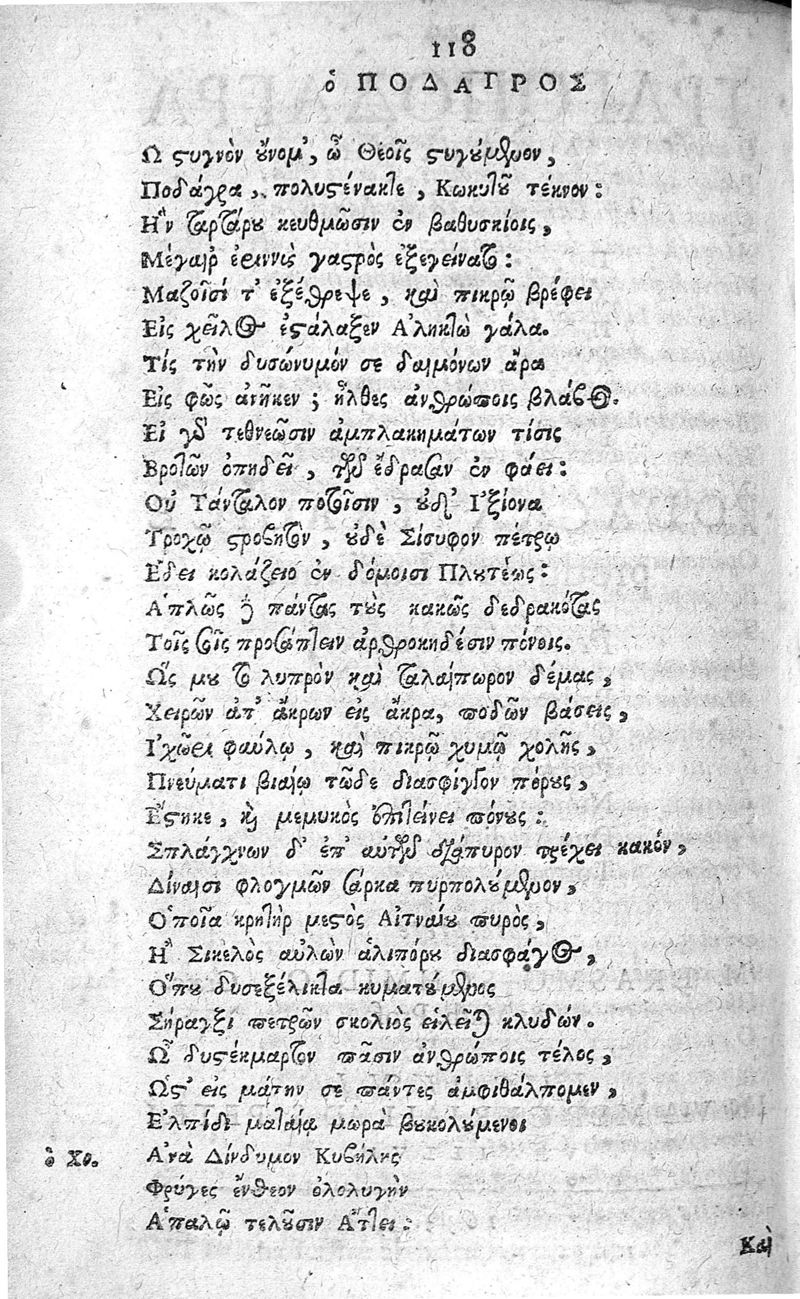 118
ὁ ΠΟΔΑΓΡΟΣ
Ω στυγνὸν οὔνομ', ὦ Θεοῖς στυγούμενον,
Ποδάγρα, πολυστένακτε, Κωκυτοῦ τέκνον:
Ἣν ταρτάρου κευθμῶσιν ἐν βαθυσκίοις,
Μέγαιρ' ἐριννὺς γαστρὸς ἐξεγείνατο:
Μαζοῖσί τ' ἐξέθρεψε, καὶ πικρῷ βρέφει
Εἰς χεῖλος ἐστάλαξεν Ἀληκτὼ γάλα.
Τίς τὴν δυσώνυμόν σε δαιμόνων ἄρα
Εἰς φῶς ἀνῆκεν; ἦλθες ἀνθρώποις βλάβος.
Εἰ γὰρ τεθνεῶσιν ἀμπλακημάτων τίσις
Βροτῶν ὀπηδεῖ, τῶν ἔδρασαν ἐν φάει:
Οὐ Τάνταλον ποτοῖσιν, οὐδ' Ἰξίονα
Τροχῷ στροβητὸν, οὐδὲ Σίσυφον πέτρῳ
Ἔδει κολάζειν ἐν δόμοισι Πλουτέως:
Ἁπλῶς δὲ πάντας τοὺς κακῶς δεδρακότας
Τοῖς σοῖς προσάπτειν ἀρθροκηδέσιν πόνοις.
Ὥς μου τὸ λυπρὸν καὶ ταλαίπωρον δέμας,
Χειρῶν ἀπ' ἄκρων εἰς ἄκρα, ποδῶν βάσεις,
Ἰχῶρι φαύλῳ, καὶ πικρῷ χυμῷ χολῆς,
Πνεύματι βιαίῳ τῶδε διασφίγγον πόρους,
Ἕστηκε, καὶ μεμυκὸς ἐπιτείνει πόνους:
Σπλάγχνων δ' ἐπ' αὐτῶν διάπυρον τρέχει κακόν,
Δίναισι φλογμῶν σάρκα πυρπολούμενον,
Ὁποῖα κρητὴρ μεστὸς Αἰτναίου πυρὸς,
Ἢ Σικελὸς αὐλὼν ἁλιπόρου διασφάγος,
Ὅπου δυσεξέλικτα κυματούμενος
Σήραγξι πετρῶν σκολιὸς εἱλεῖται κλυδών.
Ὦ δυστέκμαρτον πᾶσιν ἀνθρώποις τέλος,
Ὡς τ' εἰς μάτην σε πάντες ἀμφιθάλπομεν,
Ἐλπίδι ματαίᾳ μωρὰ βουκολούμενοι
ὁ Χο. Ἀνὰ Δίνδυμον Κυβήλης
Φρύγες ἔνθεον ὀλολυγὴν
Ἁπαλῷ τελοῦσιν Ἄττει:
Καὶ